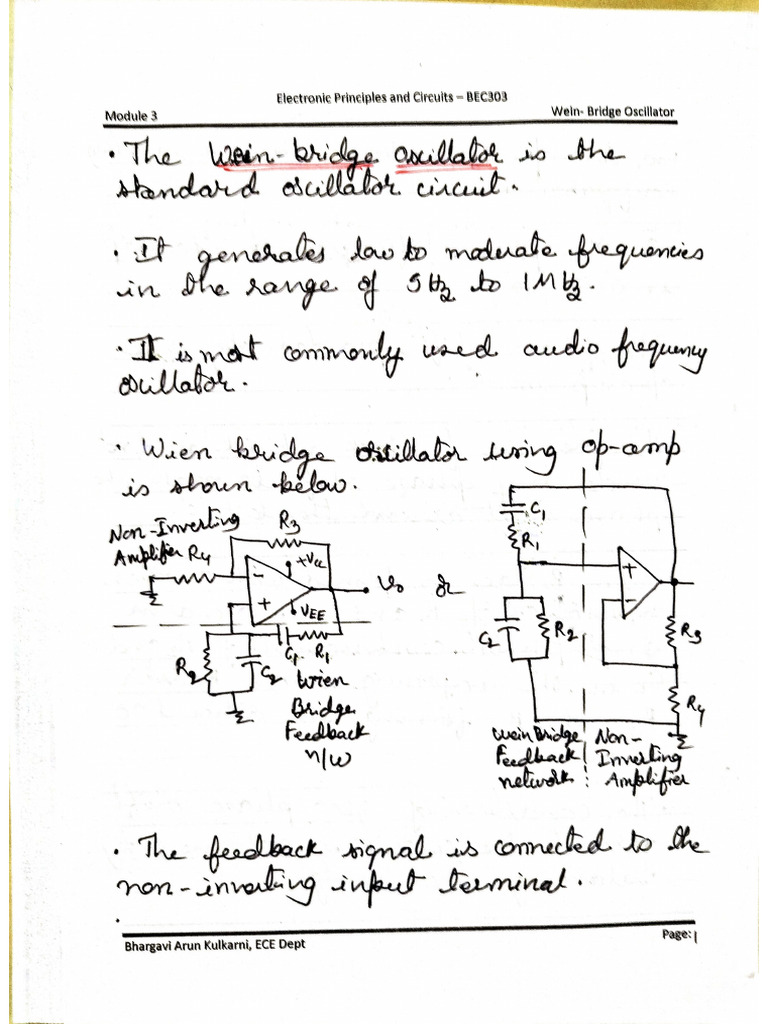 Electronic Principles and Circuits – BEC303
Module 3
Wein- Bridge Oscillator
• The Wein-bridge oscillator is the
standard oscillator circuit.
• It generates low to moderate frequencies
in the range of 5Hz to 1MHz.
• It is most commonly used audio frequency
oscillator.
• Wien bridge oscillator using op-amp
is shown below.
Non-Inverting
Amplifier R4
R3
+VCC
-
+
VEE
Vo
C1 R1
R2
C2
Wien
Bridge
Feedback
n/w
or
C1
R1
C2
R2
+
-
R3
R4
Wein Bridge
Feedback
network
Non-
Inverting
Amplifier
• The feedback signal is connected to the
non-inverting input terminal.
•
Bhargavi Arun Kulkarni, ECE Dept
Page: 1